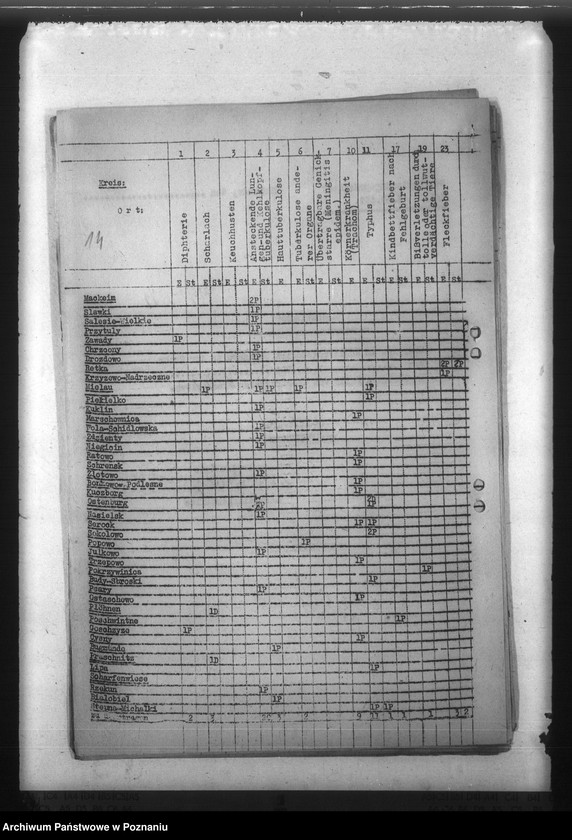 1 2 3 4 5 6 7 10 11 17 19 23
Kreis:
Ort:
14
Diphterie
Scharlach
Keuchhusten
Ansteckende Lun-
gen-und Kehlkopf-
tuberkulose
Hauttuberkulose
Tuberkulose ande-
rer Organe
Übertragbare Genick-
starre (Meningitis
epidem.)
Körnerkrankheit
(Trachom)
Typhus
Kindbettfieber nach
Fehlgeburt
Bißverletzungen durch
tolle oder tollwut-
verdächtige Tiere
Fleckfieber
E St E St E St E St E St E St E St E St E St E St E St
Mackeim 2P
Slawki 1P
Salesie-Wielkie 1P
Przytuly 1P
Zawady 1P
Chrzcony 1P
Drozdowo 1P
Retka 2P 2P
Krzyzewo-Nadrzeczne 1P
Mielau 1P 1P 1P 1P 1P
Piekielko 1P
Kuklin 1P
Marschownica 1P
Pola-Schidlowska 1P
Zdzienty 1P
Niegicin 1P
Ratowo 1P
Schrensk 1P
Zlotowo 1P
Podlesne 1P
Kuczborg 1P
Ostenburg 1P
Nasielsk 1P
Serock 1P 1P
Sokolowo 2P
Popowo 1P
Julkowo 1P
Trzepowo 1P
Pokrzywinca 1P
Rudy-Sbroski 1P
Psary 1P
Ostaschowo 1P
Plöhnen 1D
Poschwintne 1P
Goschzyze 1P
Cysny 1P
1P
Praschnitz 1D
Lipa 1P
Scharfenwiese
Rzekun 1P
Bialobiel 1P
1P 1P
2 3 20 3 2 9 11 1 1 1 3 2
Archiwum Państwowe w Poznaniu